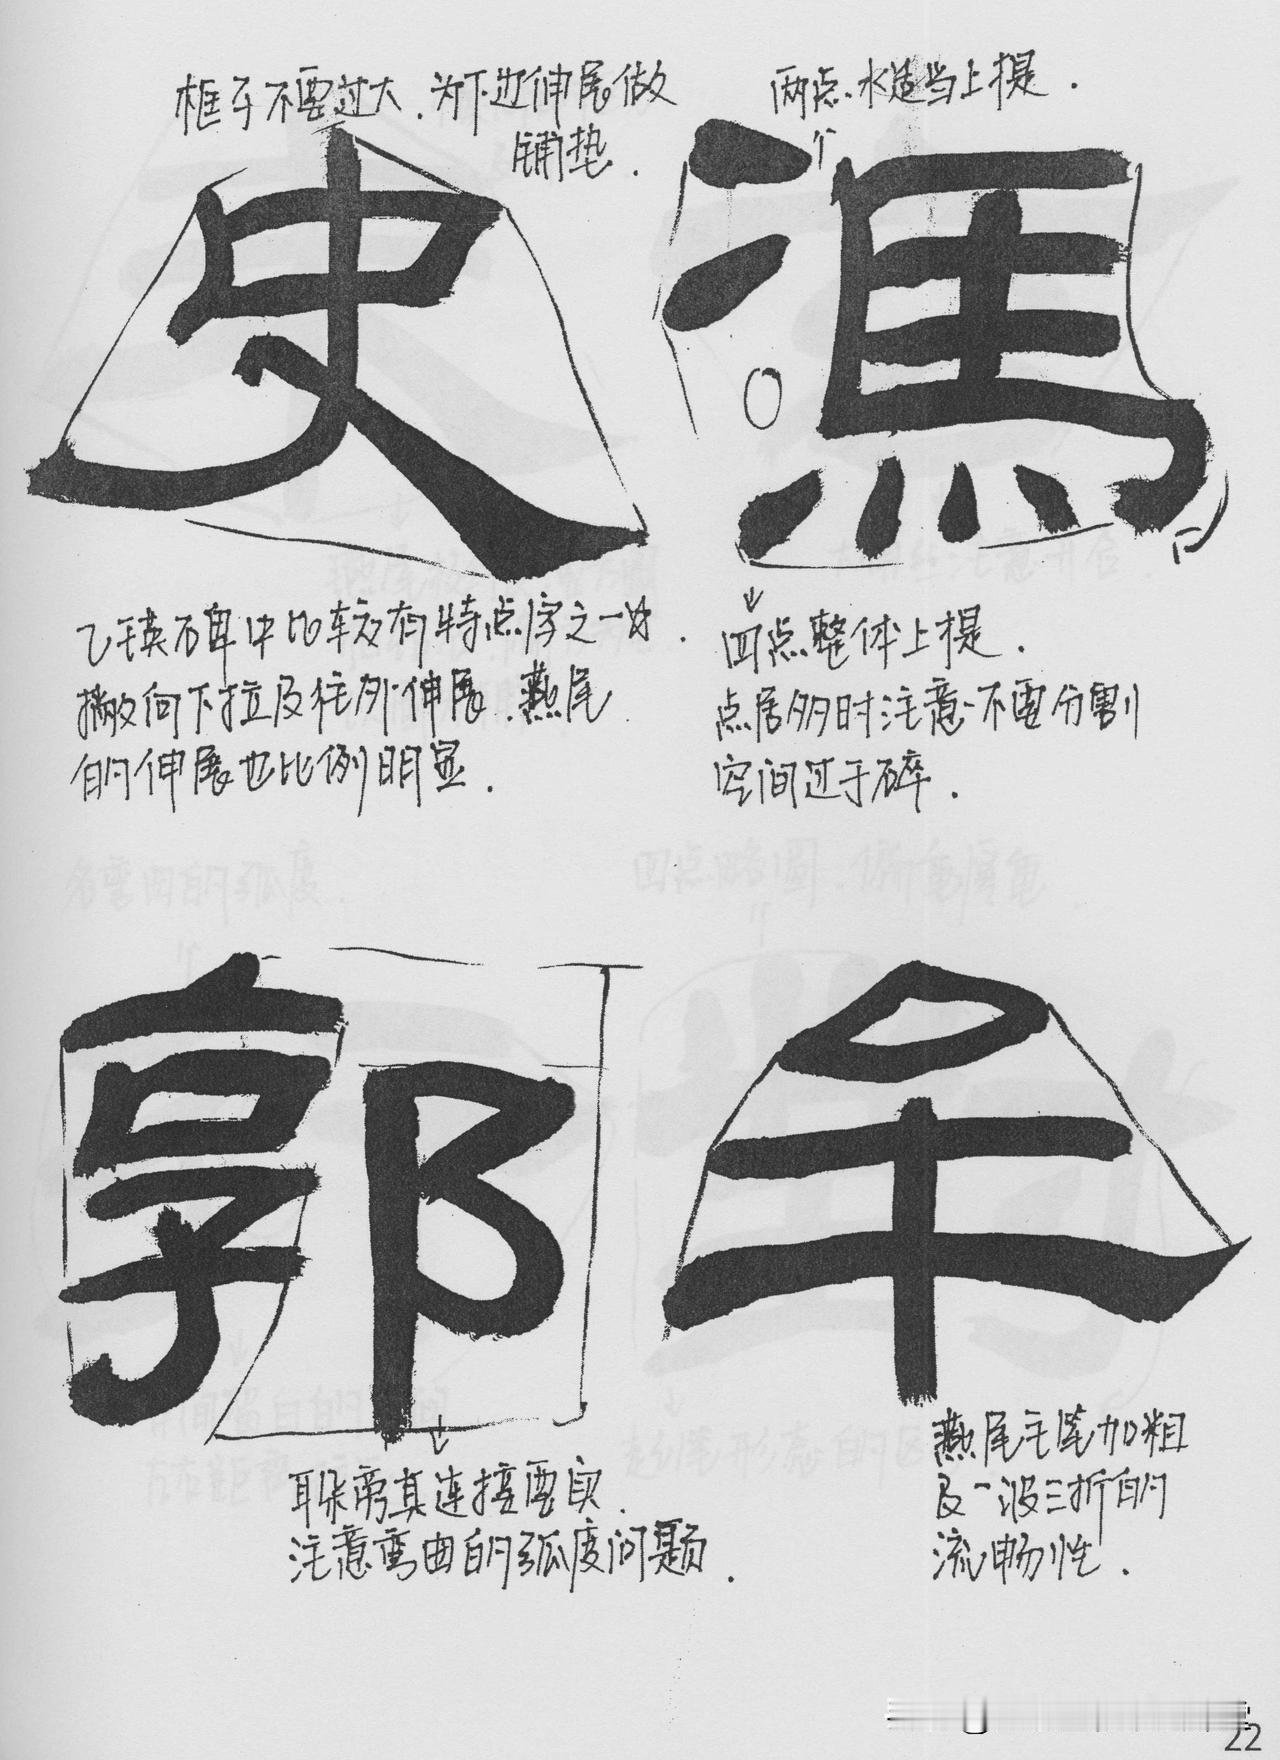 框子不要过大.为下边伸展做
铺垫.
两点水适当上提.
史
馮
乙瑛碑中比较有特点字之一.
撇向下拉及往外伸展.燕尾
的伸展也比例明显.
四点整体上提.
点居多时注意不要分割
空间过于碎.
郭
牟
耳朵旁其连接要实.
注意弯曲的弧度问题.
燕尾主笔加粗
及一波三折的
流畅性.
22